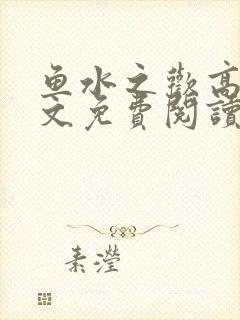 魚水之歡高
文免費閱讀
素瀅